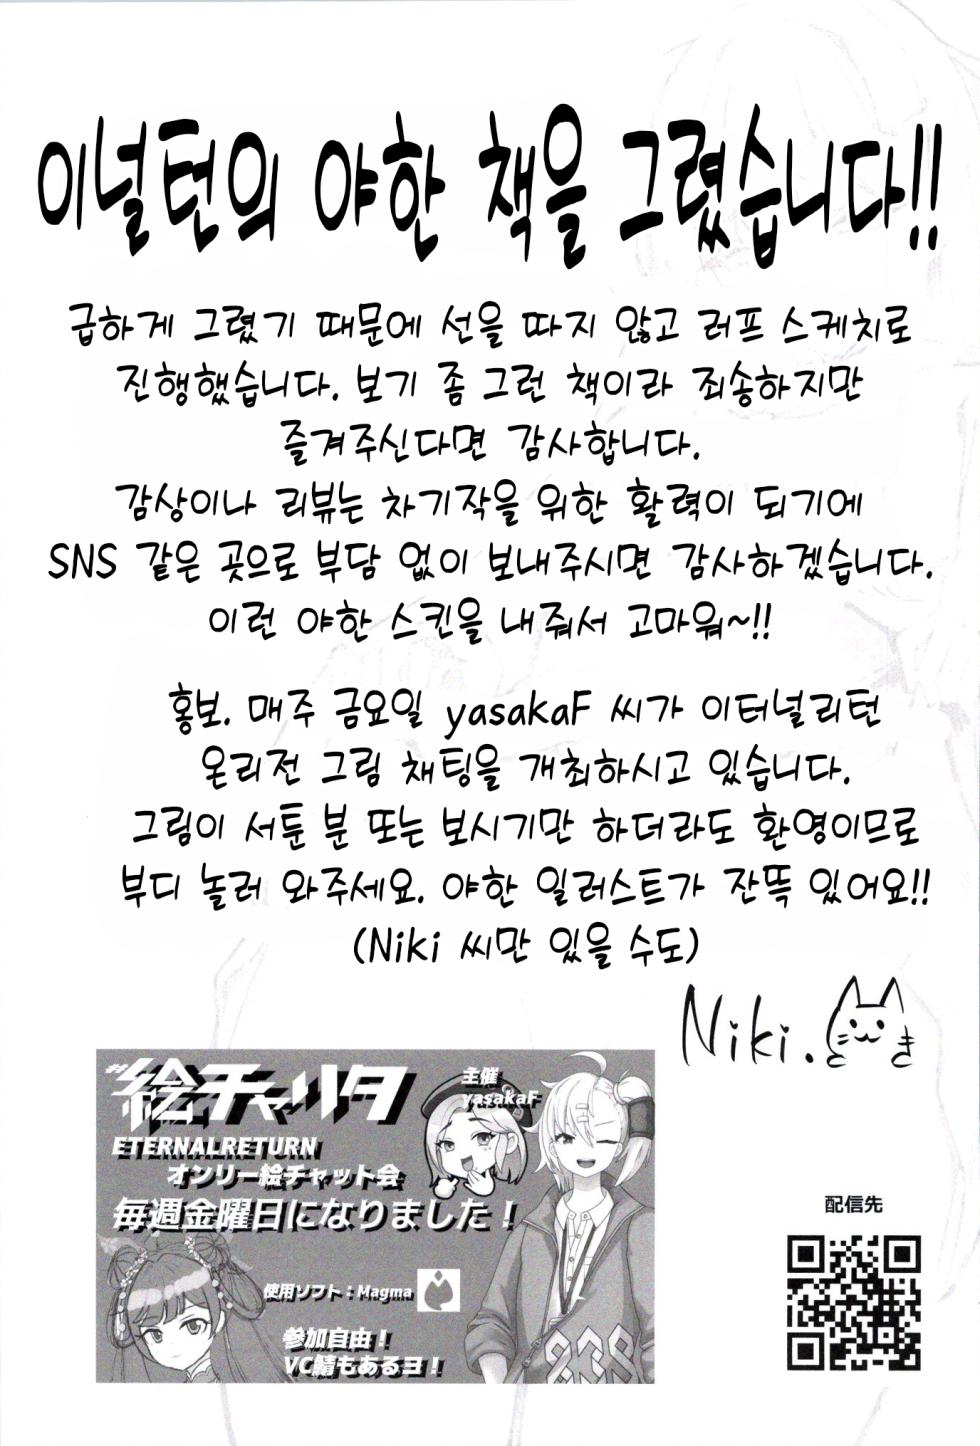 이널턴의 야한 책을 그렸습니다!!
급하게 그렸기 때문에 선을 따지 않고 러프 스케치로
진행했습니다. 보기 좀 그런 책이라 죄송하지만
즐겨주신다면 감사합니다.
감상이나 리뷰는 차기작을 위한 활력이 되기에
SNS 같은 곳으로 부담 없이 보내주시면 감사하겠습니다.
이런 야한 스킨을 내줘서 고마워~!!
홍보. 매주 금요일 yasakaF 씨가 이터널리턴
온리전 그림 채팅을 개최하시고 있습니다.
그림이 서툰 분 또는 보시기만 하더라도 환영이므로
부디 놀러 와주세요. 야한 일러스트가 잔뜩 있어요!!
(Niki 씨만 있을 수도)
Niki.
き
#絵チャリタ
主催
yasakaF
ETERNALRETURN
オンリー絵チャット会
毎週金曜日になりました！
使用ソフト：Magma
参加自由！
VC鯖もあるヨ！
配信先